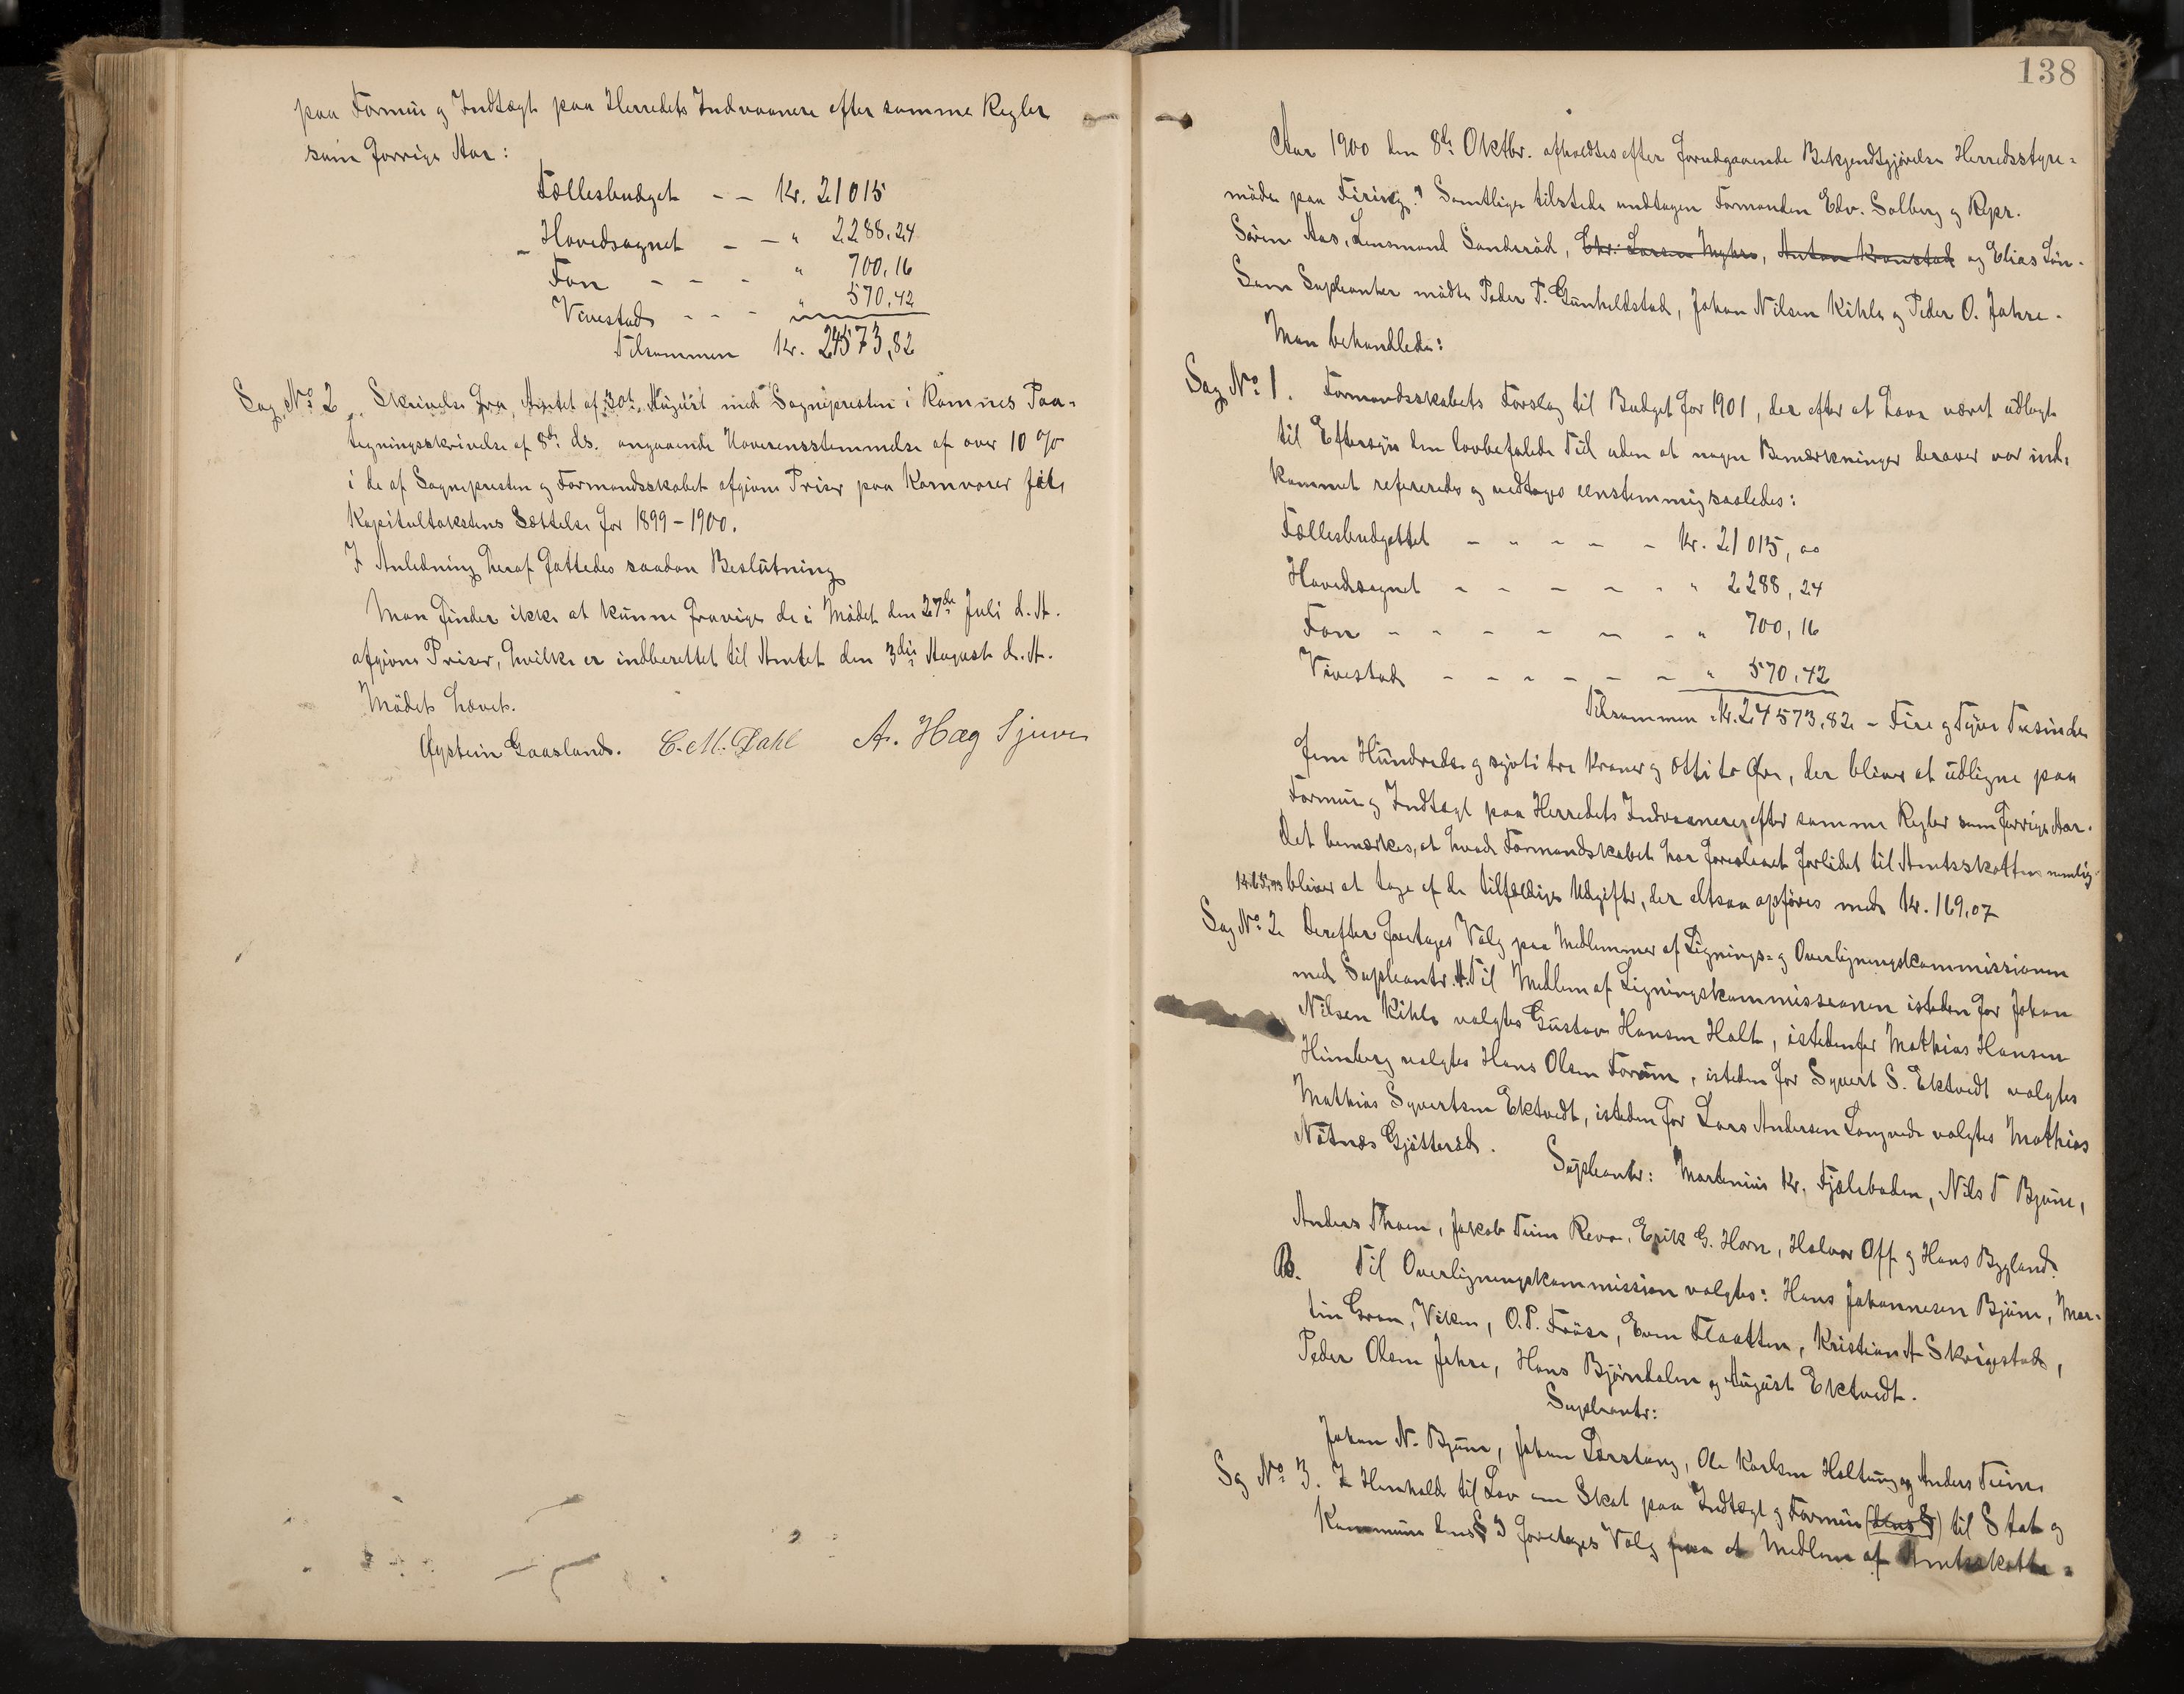 paa Formue og Indtægt paa Herredets Indvaanere efter samme Regler
som forrige Aar:
Fællesbudget - - Kr. 21015
Hovedsognet - - " 2288,24
Fon - - - " 700,16
Vivestad - - - " 570,42
Tilsammen Kr. 24573,82
Sag No 2. Skrivelse fra Amtet af 30te August med Sognepresten i Ramnes Paa-
tegningsskrivelse af 8de ds. angaaende Uoverensstemmelse af over 10 %
i de af Sognepresten og Formandsskabet afgivne Priser paa Kornvarer til
Kapitultakstens Sættelse for 1899-1900.
I Anledning heraf fattedes saadan Beslutning
Man finder ikke at kunne fravige de i Mødet den 27de Juli d. A.
afgivne Priser, hvilke er indberettet til Amtet den 3die August d. A.
Mødet hævet.
Øystein Gaasland. C. M. Dahl A. Hæg Sjuve
138
Aar 1900 den 8de Oktbr. afholdtes efter forudgaaende Bekjendtgjørelse Herredsstyre-
møde paa Firing. Samtlige tilstede undtagen Formanden Edv. Solberg og Repr.
Søren Aas, Lensmand Sanderød, Chr. Larsen Myhre, Anton Kronstad og Elias Løn.
Som Supleanter mødte Peder T. Gunheldstad, Johan Nilsen Kihle og Peder O. Jahre.
Man behandlede:
Sag No 1. Formandsskabets Forslag til Budget for 1901, der efter at have været udlagt
til Eftersyn den lovbefalede Tid uden at nogen Bemærkninger derover var ind-
kommet refereredes og vedtoges eenstemmig saaledes:
Fællesbudgettet - " - - - Kr. 21015,00
Hovedsognet - - - - - " 2288,24
Fon - - - - - - " 700,16
Vivestad - - - - - - " 570,42
Tilsammen Kr. 24573,82 - Fire og Tyve Tusinde
fem Hundrede og sytti tre Kroner og otti to Øre, der bliver at udligne paa
Formue og Indtægt paa Herredets Indvaanere efter samme Regler som forrige Aar.
Det bemærkes, at hvad Formandskabet har foreslaaet forlidet til Amtsskatten nemlig
bliver at tage af de tilfældige Udgifter, der altsaa opføres med Kr. 169,07
Sag No 2. Derefter foretoges Valg paa Medlemmer af Lignings- og Overligningskommissionen
med Supleanter. A. Til Medlem af Ligningskommissionen isteden for Johan
Nilsen Kihle valgtes Gustav Hansen Holt, istedenfor Mathias Hansen
Himberg valgtes Hans Olsen Foruun, isteden for Syvert S. Ektvedt valgtes
Mathias Syvertsen Ektvedt, isteden for Lars Andersen Langved valgtes Mathias
Nøtnes Gjøtterød. Supleanter: Martinius Kr. Fjelebaden, Nils T Bjune,
Anders Thoen, Jakob Teien Revo, Erik G. Horn, Halvor Off og Hans Bygland.
B. Til Overligningskommission valgtes: Hans Johannesen Bjune, Mar-
tin Gran, Viken, O.P. Frøse, Even Flaatten, Kristian A Skrigestad,
Peder Olsen Jahre, Hans Bjørndalen og August Ektvedt.
Supleanter:
Johan N. Bjune, Johan Lerstang, Ole Karlsen Holtung og Anders Teien
Sag No 3. I Henhold til Lov om Skat paa Indtægt og Formue (dens §) til Stat og
Kommune dens § 3 foretoges Valg paa et Medlem af Amtsskatte-